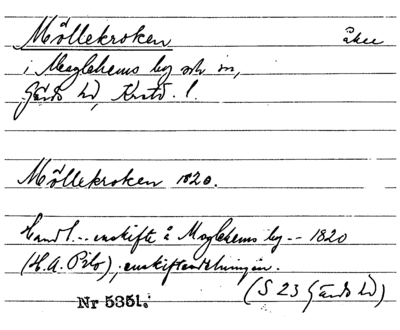 Möllekroken åker
i Maglehems by och sn,
Gärds hd, Krstd. l.
Möllekroken 1820.
Handl. -- enskifte å Maglehems by -- 1820
(H.A. Pilo), enskiftesdelningen.
(S 23 Gärds hd)
Nr 5351.